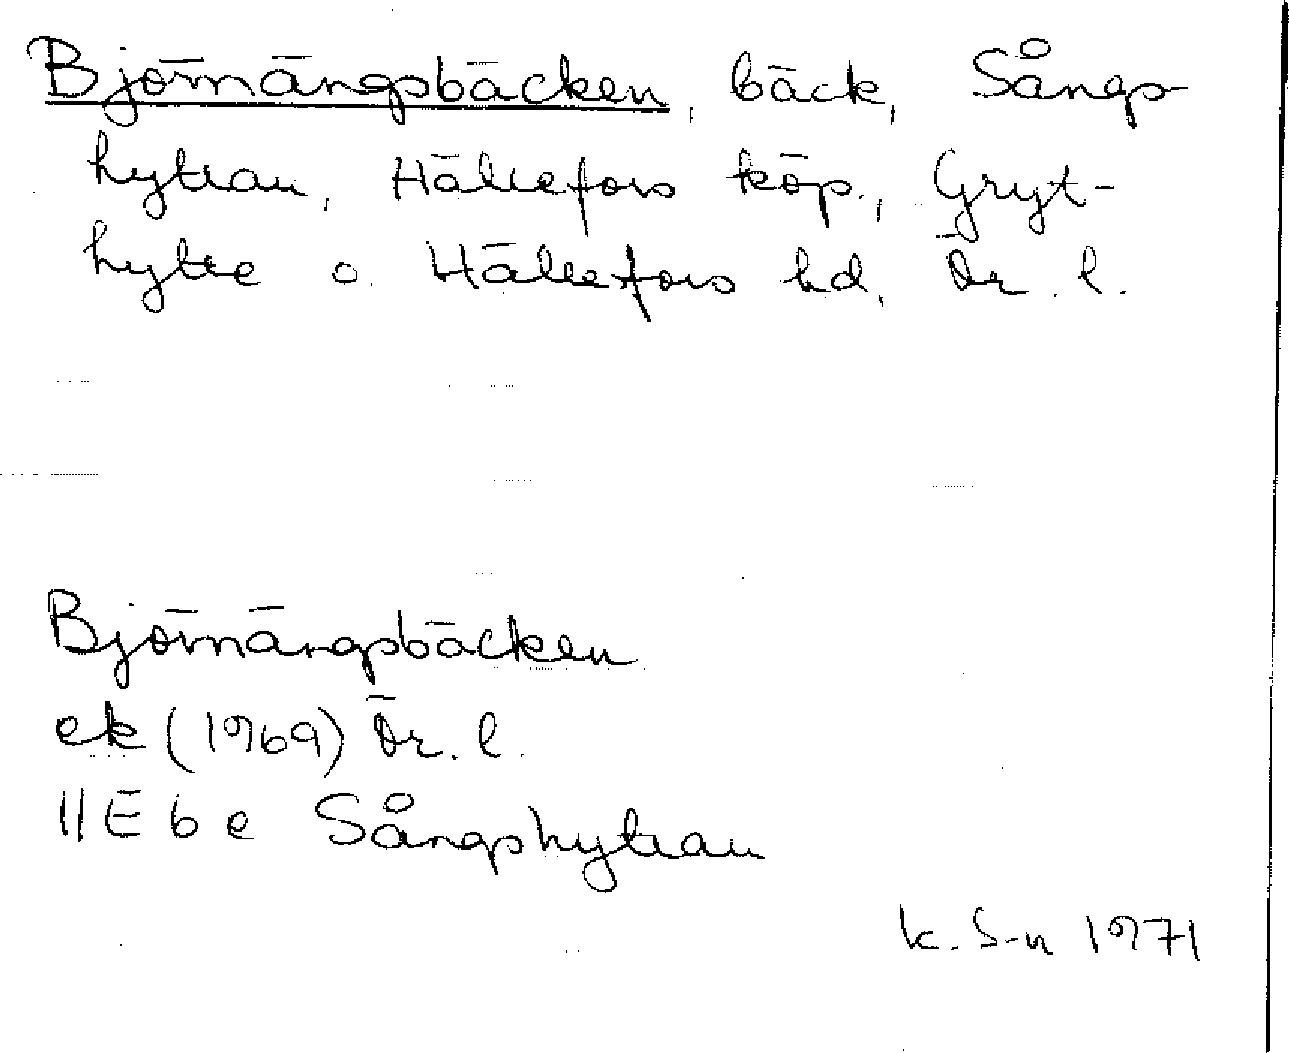 Björnängsbäcken, bäck, Sångs-
hyttan, Hällefors köp., Gryt-
hytte o. Hällefors hd, Ör. l.
Björnängsbäcken
ek (1969) Ör. l.
11E 6 e Sångshyttan
K. S-n 1971